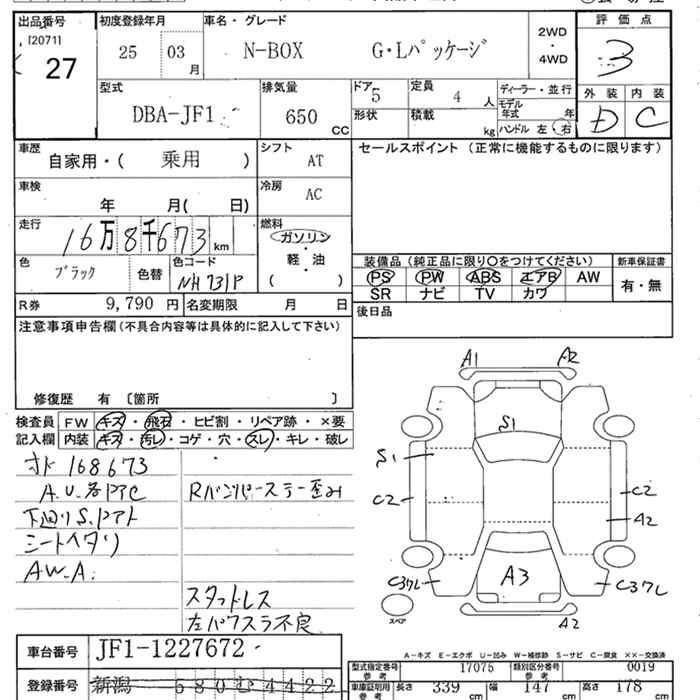 出品番号 初度登録年月 車名・グレード 2WD・4WD 評価点
[20711]
27 25 03月 N-BOX G・Lパッケージ 3
型式 排気量 ドア 5 定員 4人 ディーラー・並行 外装 内装
DBA-JF1 650 cc 形状 積載 kg モデル年式 年 D C
ハンドル 左・右
車歴 自家用・( 乗用 ) シフト AT セールスポイント (正常に機能するものに限ります)
車検 年 月( 日) 冷房 AC
走行 16万8千673 km 燃料 ガソリン・軽・油 ( )
色 ブラック 色替 色コード NH731P
装備品 (純正品に限り○をつけてください) 新車保証書
PS PW ABS エアB AW 有・無
SR ナビ TV カワ
R券 9,790円 名変期限 月 日 後日品
注意事項申告欄 (不具合内容等は具体的に記入して下さい)
修復歴 有 〔箇所 〕
検査員 FW キズ・飛石・ヒビ割・リペア跡・×要
記入欄 内装 キズ・汚レ・コゲ・穴・スレ・キレ・破レ
168673
A.U.各PアC
下回りS.Pアト
シートヘタリ
AW.A.
Rバンパーステー歪み
スタットレス
左パワスラ不良
A1 A2
S1
S1
C2 C2
A2
C37L A3 C37L
スペア A2
A-キズ E-エクボ U-凹み W-補修跡 S-サビ C-腐食 ××-交換済
車台番号 JF1-1227672
型式指定番号 参考 17075 類別区分番号 参考 0019
登録番号 新潟 580 む 4422
車庫証明用 参考 長さ 339 cm 幅 147 cm 高さ 178 cm